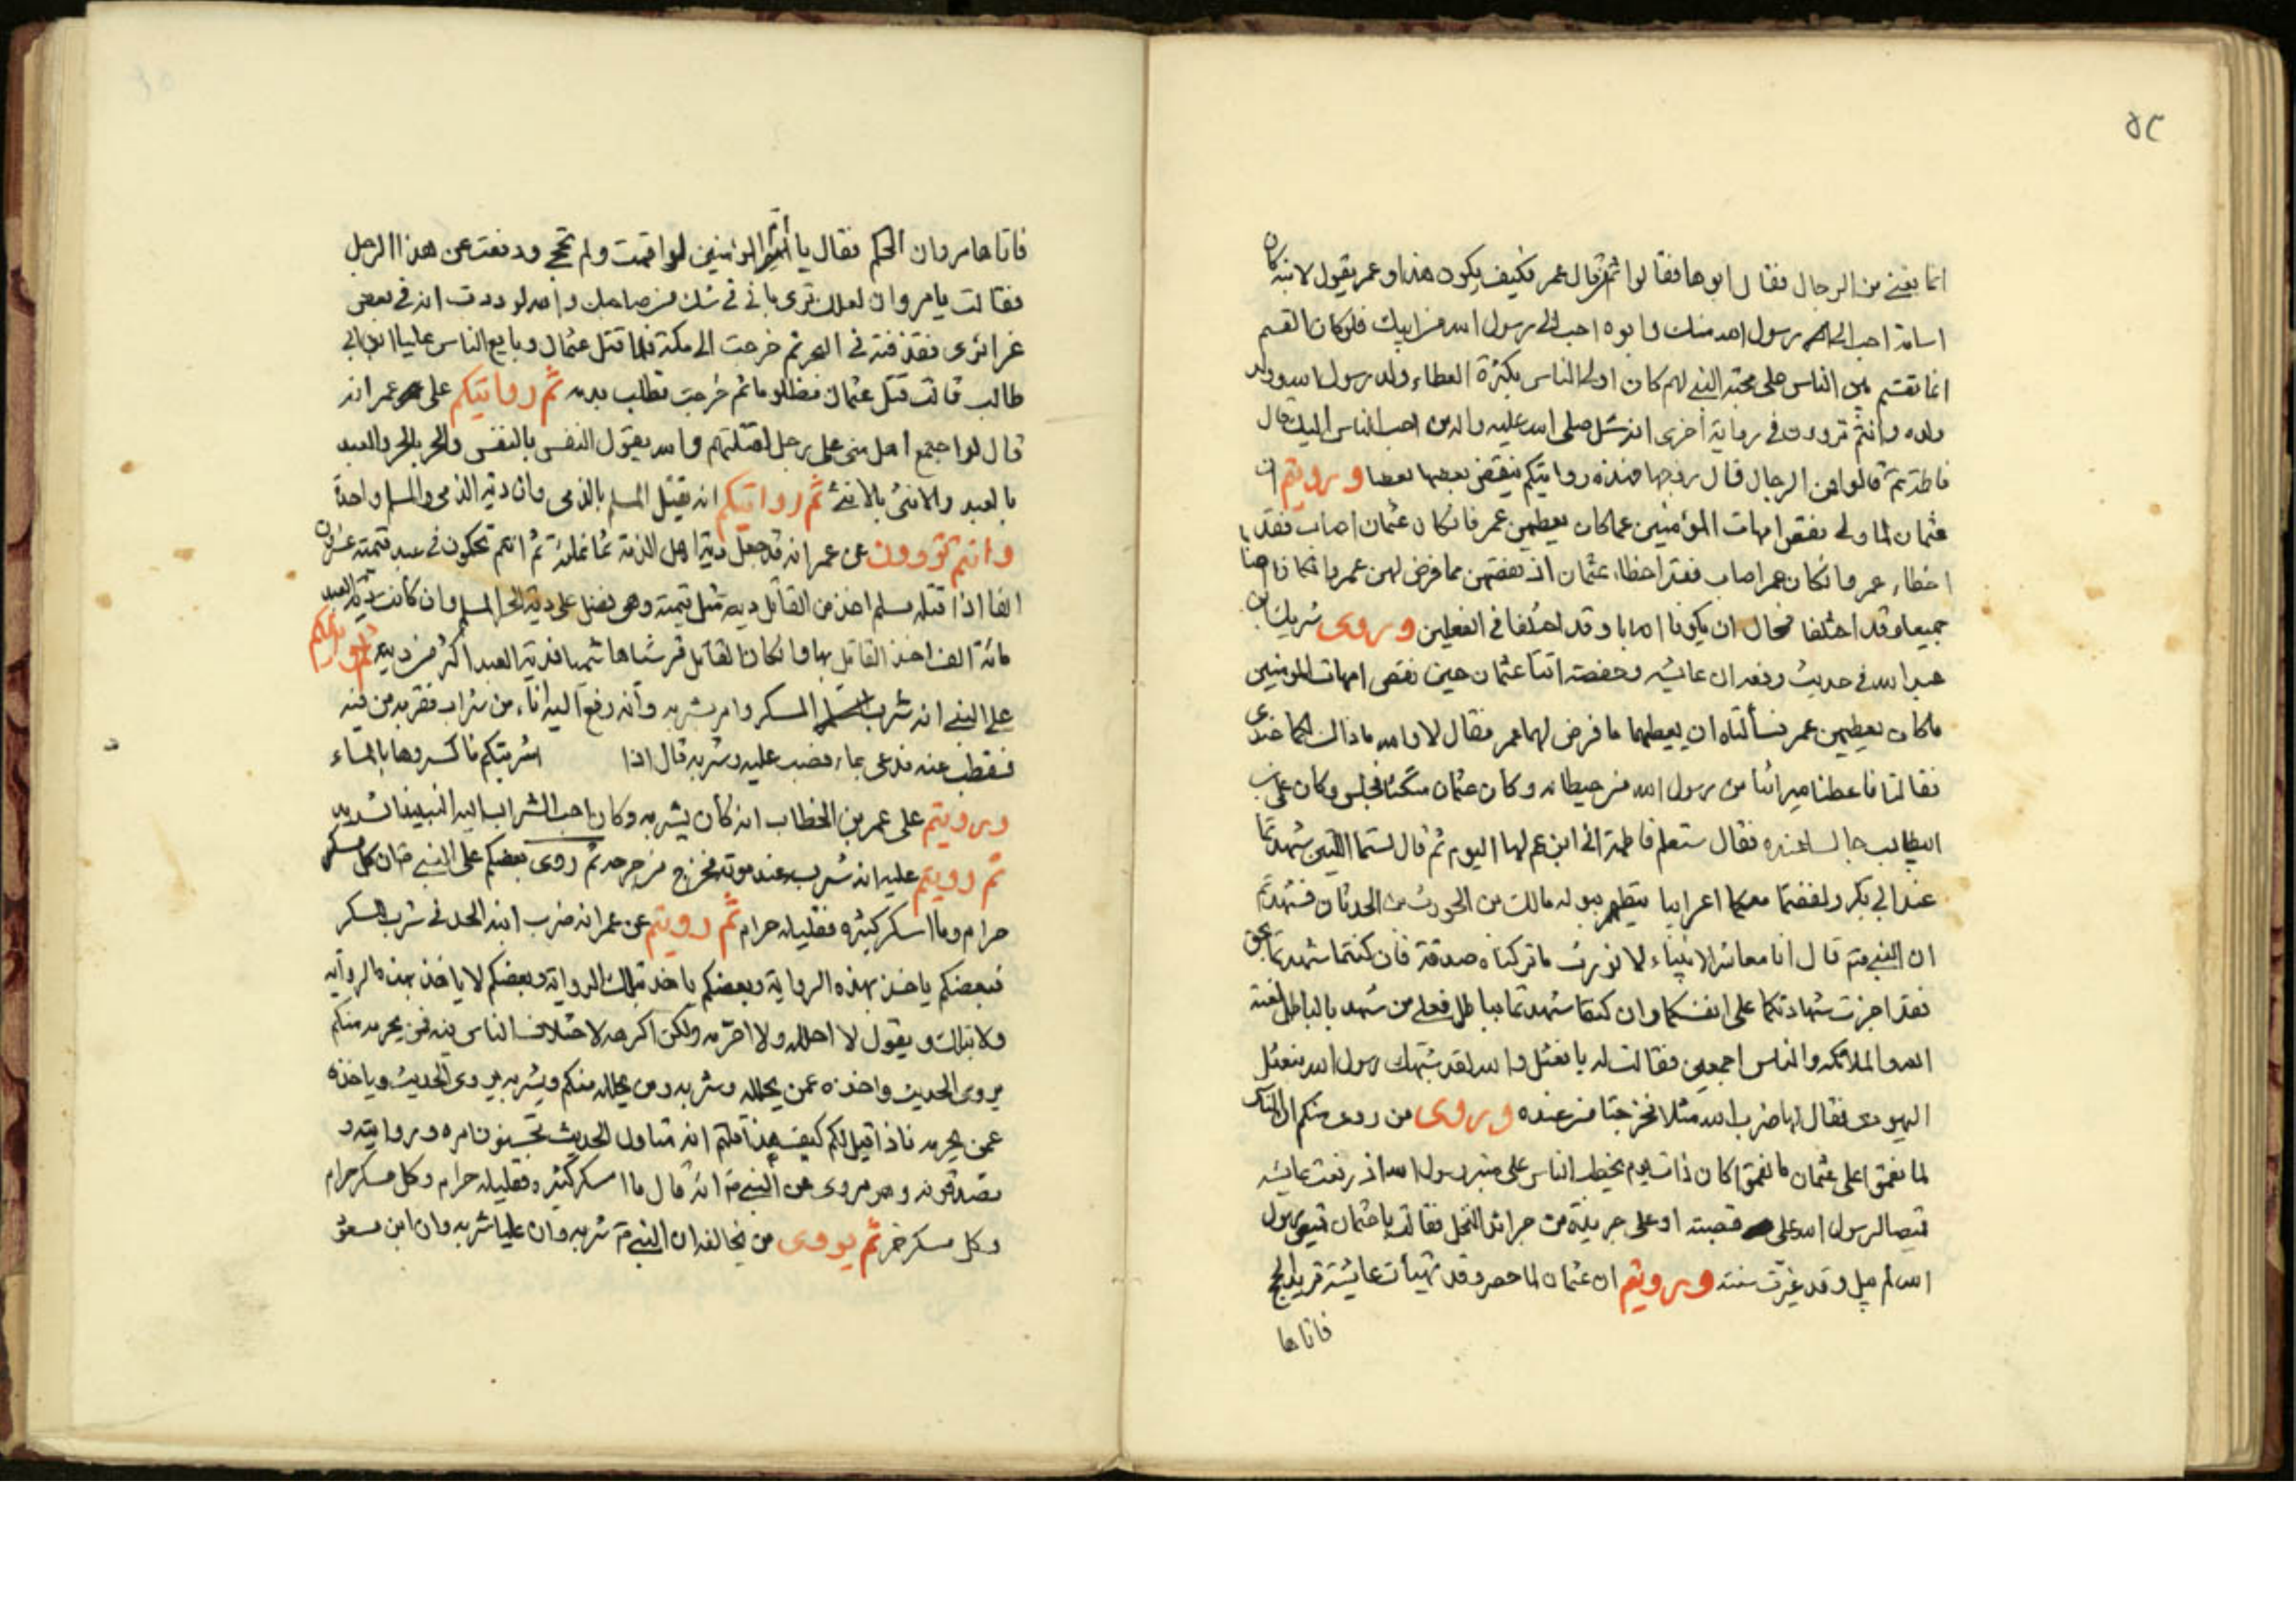 ٥٢
انما يعني من الرجال فقال ابوها فقالوا ثم قال عمر فكيف يكون هذا وعمر يقول لابنه كان
اسامة احب الى رسول الله منك وابوه احب الى رسول الله من ابيك فلو كان القسم
انما تقسم بين الناس على محبة النبي لهم كان اولى الناس بكثرة العطاء ولد رسول الله وولد
ولده وانتم تروون في رواية اخرى انه سئل صلى الله عليه واله من احب الناس اليك قال
فاطمة ثم قالوا من الرجال قال زوجها فهذه روايتكم ينقض بعضها بعضا ورويتم ان
عثمان لما ولى نقص امهات المؤمنين عما كان يعطيهن عمر فان كان عثمان اصاب فقد
اخطاء عمر وان كان عمر اصاب فقد اخطاء عثمان اذ نقصهن مما فرض لهن عمر
جميعا وقد اختلفا فحال ان يكونا اصابا وقد اختلفا في الفعلين وروى شريك بن
عبد الله في حديث رفعه ان عايشه وحفصة اتتا عثمان حين نقص امهات المؤمنين
ما كان يعطيهن عمر فسألتاه ان يعطيهما ما فرض لهما عمر فقال لا والله ما ذاك لكما عندى
فقالتا فاعطنا ميراثنا من رسول الله من حيطانه وكان عثمان متكئا فجلس وكان على بن
ابيطالب جالسا عنده فقال ستعلم فاطمة انى ابن عم لها اليوم ثم قال لستما اللتين شهدتما
عند ابي بكر ولفقتما معكما اعرابيا يتطهر ببوله مالك بن الحويرث بن الحدثان فشهدتم
ان النبي قال انا معاشر الانبياء لا نورث ما تركناه صدقة فان كنتما شهدتما بحق
فقد اجزت شهادتكما على انفسكما وان كنتما شهدتما بباطل فعلى من شهد بالباطل لعنة
الله والملائكه والناس اجمعين فقالتا له يا نعثل والله لقد شبهك رسول الله بنعثل
اليهودى فقال لهما ضرب الله مثلا فخرجتا من عنده وروى من روى منكم ان الناس
لما نقموا على عثمان ما نقموا كان ذات يوم يخطب الناس على منبر رسول الله اذ رفعت عايشه
قميصا لرسول الله على قصبة او على جريدة من جرائد النخل فقالت يا عثمان قميص رسول
الله لم يبل وقد غيرت سنته ورويتم ان عثمان لما حصر وقد تهيأت عايشة تريد الحج
فاتاها
فاتاها مروان الحكم فقال يا ام المؤمنين لو اقمت ولم تحج ودفعت عن هذا الرجل
فقالت يا مروان لعلك ترى بانى في شك من صاحبك والله لوددت انه في بعض
غرائرى فقذفته في البحر ثم خرجت الى مكة فلما قتل عثمان وبايع الناس عليا ابن ابي
طالب قالت قتل عثمان مظلوما ثم خرجت تطلب بدمه ثم روايتكم على عمر انه
قال لو اجتمع اهل منى على رجل لقتلتهم والله يقول النفس بالنفس والحر بالحر والعبد
بالعبد والانثى بالانثى ثم روايتكم انه يقتل المسلم بالذمى وان دية الذمى والمسلم واحدة
وانتم تروون عن عمر انه قد جعل دية اهل الذمة ثمانمائة ثم انتم تحكمون في عبد قيمته عشرون
الفا اذا قتله مسلم اخذ من القاتل ديه مثل قيمته وهى تفضل على دية الحر المسلم وان كانت قيمة العبد
مائة الف اخذ القاتل بها وان كان القاتل قرشيا هاشميا فدية العبد اكثر من ديته ثم روايتكم
على النبي انه شرب المسكر وامر بشربه وانه رفع اليه اناء من شراب فقربه من فيه
فقطب عنه فدعى بماء فصب عليه وشربه قال اذا اشربتكم فاكسروها بالماء
ورويتم على عمر بن الخطاب انه كان يشربه وكان احب الشراب اليه النبيذ الشديد
ثم رويتم عليه انه شرب عند موته فخرج من جرحه ثم روى بعضكم على النبي ان كل مسكر
حرام وما اسكر كثيره فقليله حرام ثم رويتم عن عمر انه ضرب ابنه الحد في شرب المسكر
فبعضكم ياخذ بهذه الرواية وبعضكم ياخذ بتلك الرواية وبعضكم لا ياخذ بهذه الرواية
ولا بتلك ويقول لا احلله ولا احرمه ولكن اكرهه لاختلاف الناس فيه فمن يحرمه منكم
يروى الحديث واخذه عمن يحلله وشربه ومن يحلله منكم ويشربه يروى الحديث وياخذه
عمن يحرمه فاذا قيل لكم كيف هذا قلتم انه متاول الحديث تحسنون امره وروايته و
تصدقونه وهو يروى عن النبي انه قال ما اسكر كثيره فقليله حرام وكل مسكر حرام
وكل مسكر خمر ثم يروى من يخالفه ان النبي شربه وان عليا شربه وان ابن مسعود